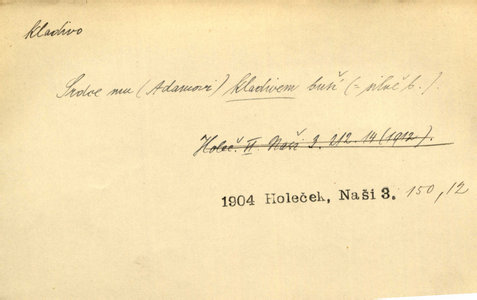 kladivo
Srdce mu (Adamovi) kladivem buší (- silně b.).
Holeč. II. Naši 3. 212. 14 (1912).
1904 Holeček, Naši 3. 150, 12